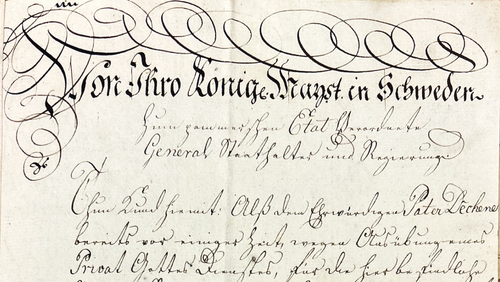 Von Ihro Königl. Mayst. in Schweden
Zum pommerschen Etat Verordnete
General Staathalter und Regierung
Thun Kund hiemit: Alß dem Ehrwürdigen Pater Dechene
bereits vor einiger Zeit, wegen Ausübung eines
Privat Gottes Dienstes, für die hier befindliche